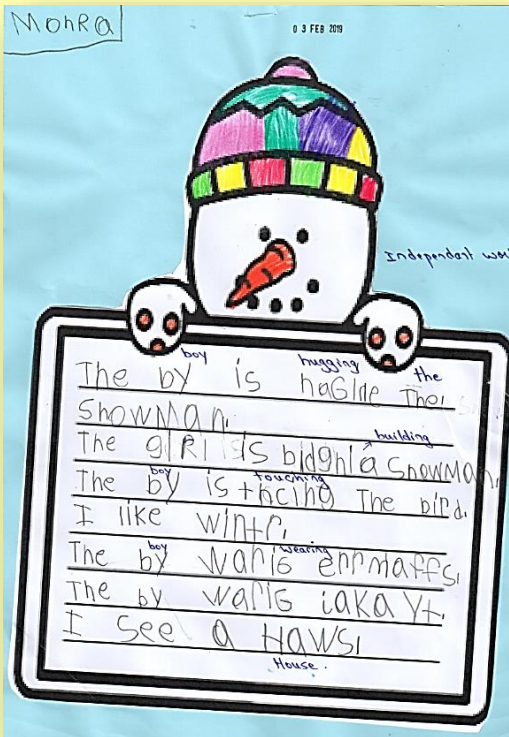 MohRa
03 FEB 2019
Independant wor
boy hugging the
The by is haGlne The
Snowman.
building
The giRl is bidghi a Snowman.
boy touching
The by is thcing The bird.
I like wintr.
boy wearing
The by waris errmaffs.
The by waris iaka yt.
I see a Haws.
House.